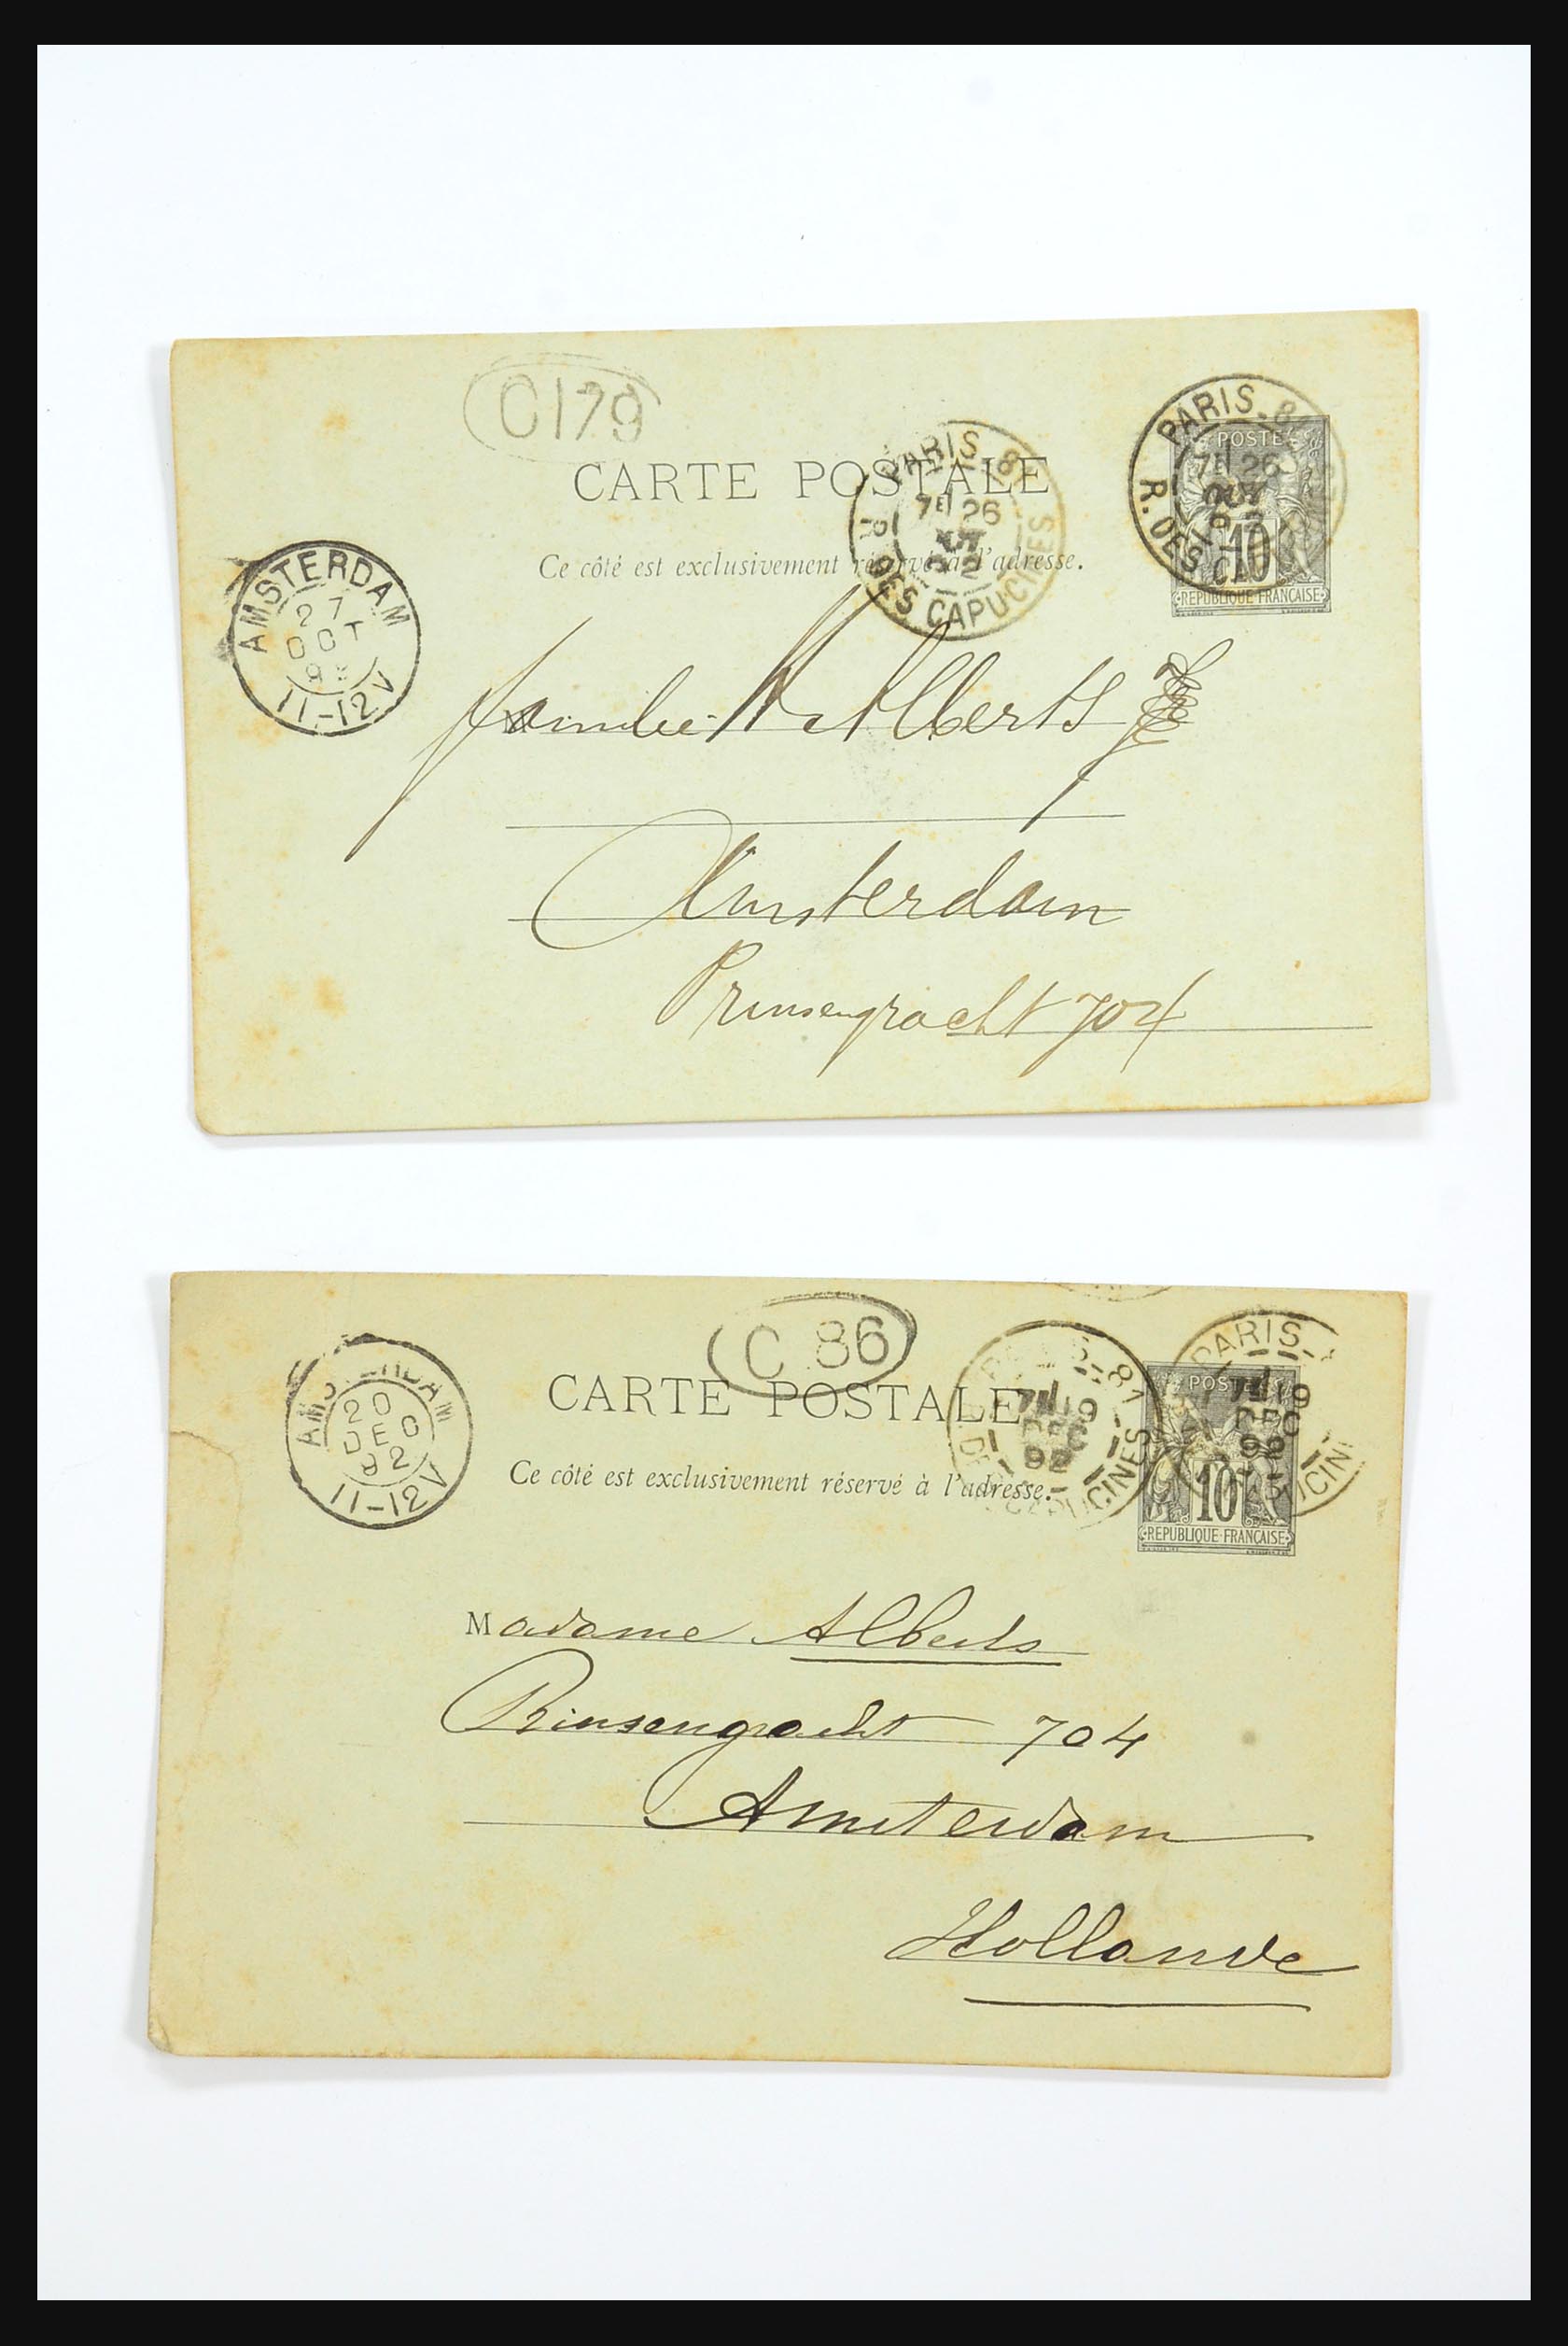 C179
CARTE POSTALE
Ce côté est exclusivement réservé à l'adresse.
PARIS-81
7E 26
OCT
92
R. DES CAPUCINES
PARIS-8
7E 26
OCT
R. DES CA
POSTE
10
REPUBLIQUE FRANÇAISE
AMSTERDAM
27
OCT
92
11-12V
Familie Alberts
Amsterdam
Prinsengracht 704
C 86
CARTE POSTALE
Ce côté est exclusivement réservé à l'adresse.
AMSTERDAM
20
DEC
92
11-12V
81
7E 19
DEC
92
DES CAPUCINES
PARIS-
7E 19
DEC
92
UCIN
POS
10
REPUBLIQUE FRANÇAISE
Madame Alberts
Prinsengracht 704
Amsterdam
Hollande